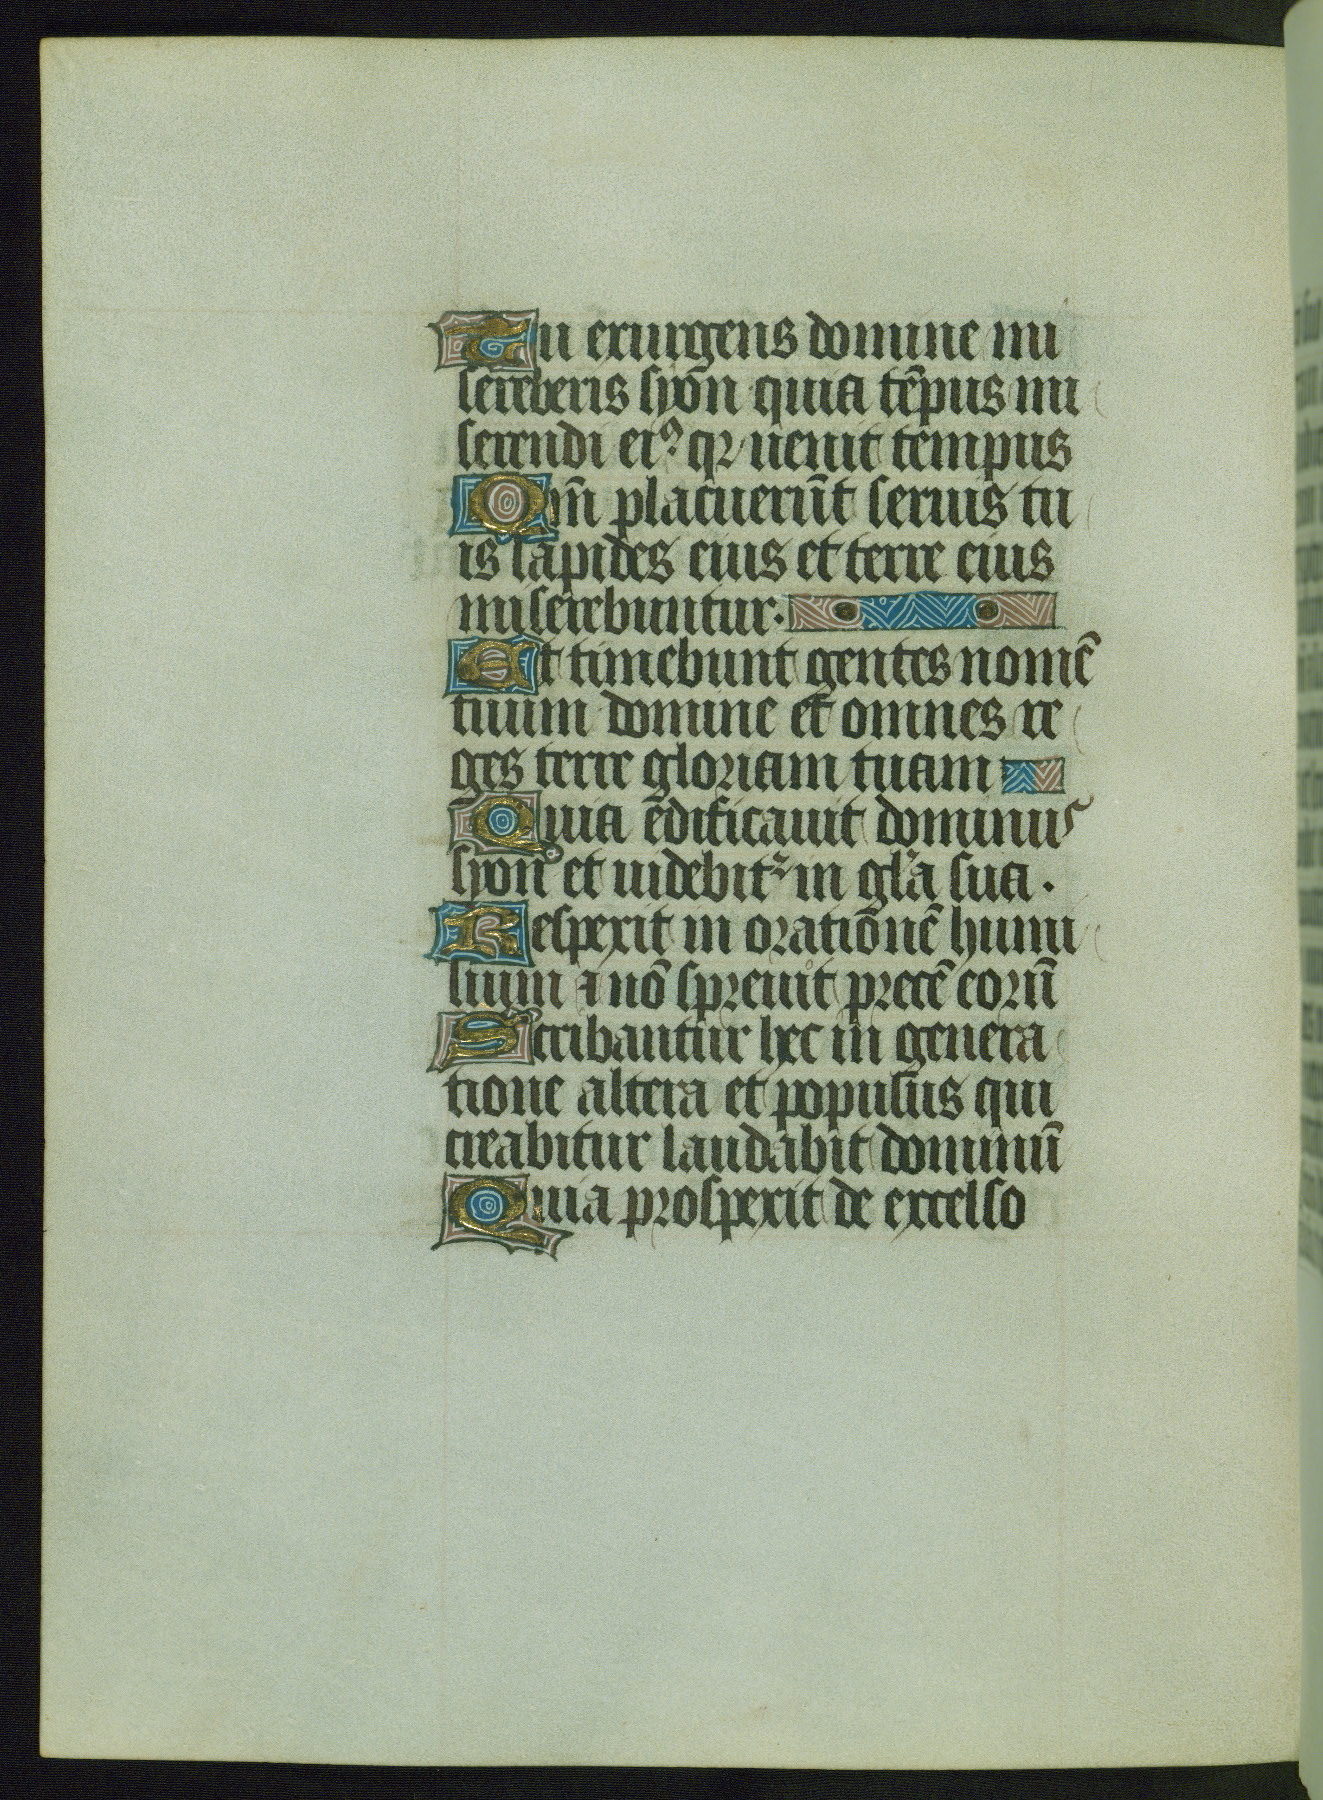 Tu exurgens domine mi
sereberis syon quia te̅pus mi
serendi ei⁹ qꝛ uenit tempus
Qm̅ placueru̅t seruis tu
is lapides eius et terre eius
miserebuntur.
Et timebunt gentes nome̅
tuum domine et omnes re
ges terre gloriam tuam
Quia edificauit dominus
syon et uidebitᷣ in gl̅a sua.
Respexit in oratio̅ne̅ humi
lium ⁊ no̅ spreuit prece̅ eoru̅
Scribantur hec in genera
tione altera et populus qui
creabitur laudabit dominu̅
Quia prospexit de excelso